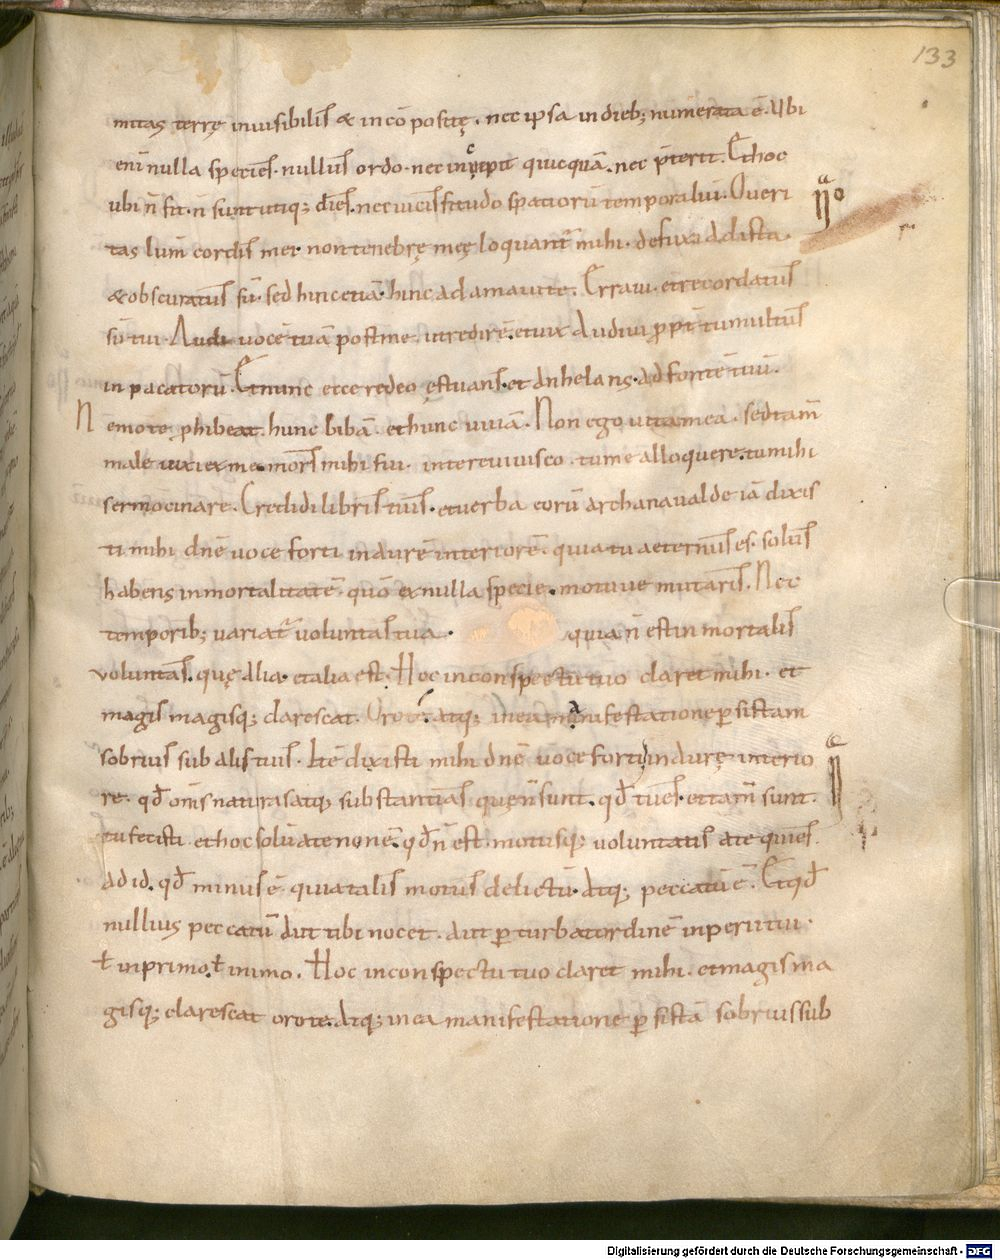 133
mitas terrę inuisibilis & incōposite. nec ipsa indieb; numerata ē. Ubi
eni nulla species. nullus ordo. nec quicquā. nec pterit. Ethoc
ubi n̄ fit. n̄ sunt utiq; dies. nec uicissitudo spatiorū temporaliū. O ueri
IIo
tas lum cordis mei non tenebrę meę loquant mihi. defluxi ad ista.
& obscuratus sū. sed hinc etiā hinc adamaui te. Erraui. et recordatus
sū tui. Audi uocē tuā post me. ut redirē. et uix Audiui ppt tumultus
inpacatorū. Et nunc ecce redeo ęstuans. et Anhelans. ad fontē tuū.
Nemo te phibeat. hunc bibā. et hunc uiuā. Non ego uita mea. sed tam
male uixi ex me. mors mihi fui. in te reuiuisco. tu me alloquere. tu mihi
sermocinare. Credidi libris tuis. et uerba eorū archana ualde iā dixis
ti mihi dn̄e uoce forti in aurē interiorē. quia tu aeternus es. solus
habens inmortalitatē. quō ex nulla specie. motuue mutaris. Nec
temporib; uariat uoluntas tua. quia n̄ est inmortalis
voluntas. quę Alia. et alia est. Hoc in conspectu tuo claret mihi. et
magis magisq; clarescat. Oro te. atq; in ea manifestatione p sistam
sobrius sub alis tuis. Itē dixisti mihi dn̄e uoce forti in Aurę interio
re. qđ omīs naturas atq; substantias quę n̄ sunt. qđ tu es. et tam̄ sunt.
tu fecisti. et hoc solū a te non ē. qđ n̄ est. motusq; voluntatis a te qui es.
ad id. qđ minus ē. quia talis motus delictū. Atq; peccatū ē. Et qđ
nullius peccatū Aut tibi nocet. Aut pturbat ordinē inperii tui.
ł in primo. ł in imo. Hoc in conspectu tuo claret mihi. et magis ma
gisq; clarescat oro te. Atq; in ea manifestatione p sistā sobrius sub
Digitalisierung gefördert durch die Deutsche Forschungsgemeinschaft - DFG